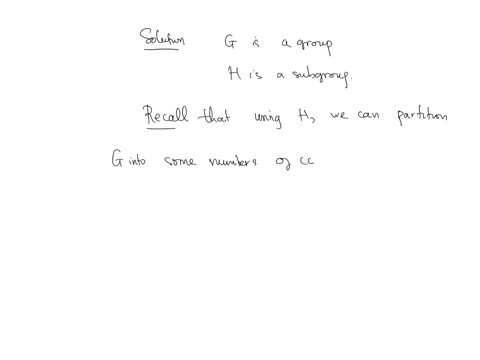 Solution G is a group
H is a subgroup.
Recall that using H, we can partition
G into some numbers of cc